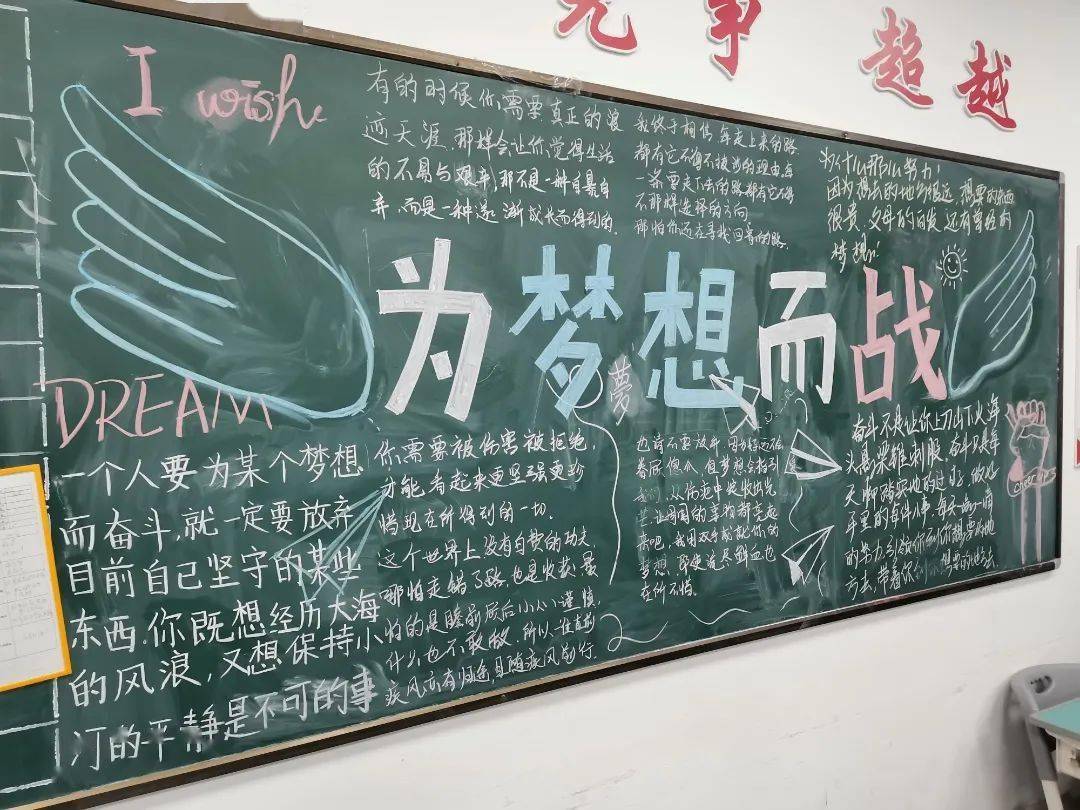 竞 事 超 越
I wish
有的时候你需要真正的浪
迹天涯,那样会让你觉得生活
的不易与艰辛,那不是一种自暴自
弃,而是一种逐渐成长而得到的.
我终于相信,每走上来的路
都有它不得不跋涉的理由每
一条要走下去的路都有它
不那样选择的方向
那怕你还在寻找回首的路.
为什么那么努力!
因为想去的地方很远,想要的东西
很贵,父母的白发,还有曾经的
梦想!
为梦想而战
夢
DREAM
一个人要为某个梦想
而奋斗,就一定要放弃
目前自己坚守的某些
东西,你既想经历大海
的风浪,又想保持小
汀的平静是不可的事
你需要被伤害被拒绝,
才能看起来更坚强更珍
惜现在所得到的一切.
这个世界上没有白费的功夫
哪怕走错了路,也是收获,最
怕的是瞻前顾后小心谨慎,
什么也不敢做 所以一往直前
疾风亦有归途,且随疾风前行.
也许不要放弃
眷顾傻瓜,但梦想会指引
我们,从伤疤中绽放出光
芒,让周围的事物都亮起
来吧,我用双手成就你的
梦想,即使流尽鲜血也
在所不惜.
奋斗不是让你上刀山下火海
头悬梁锥刺股,奋斗只是每
天脚踏实地的过好,做好
平里的每件小事,每天
的努力,引领你到你想要的地
方去,带着你到想要的地方去.